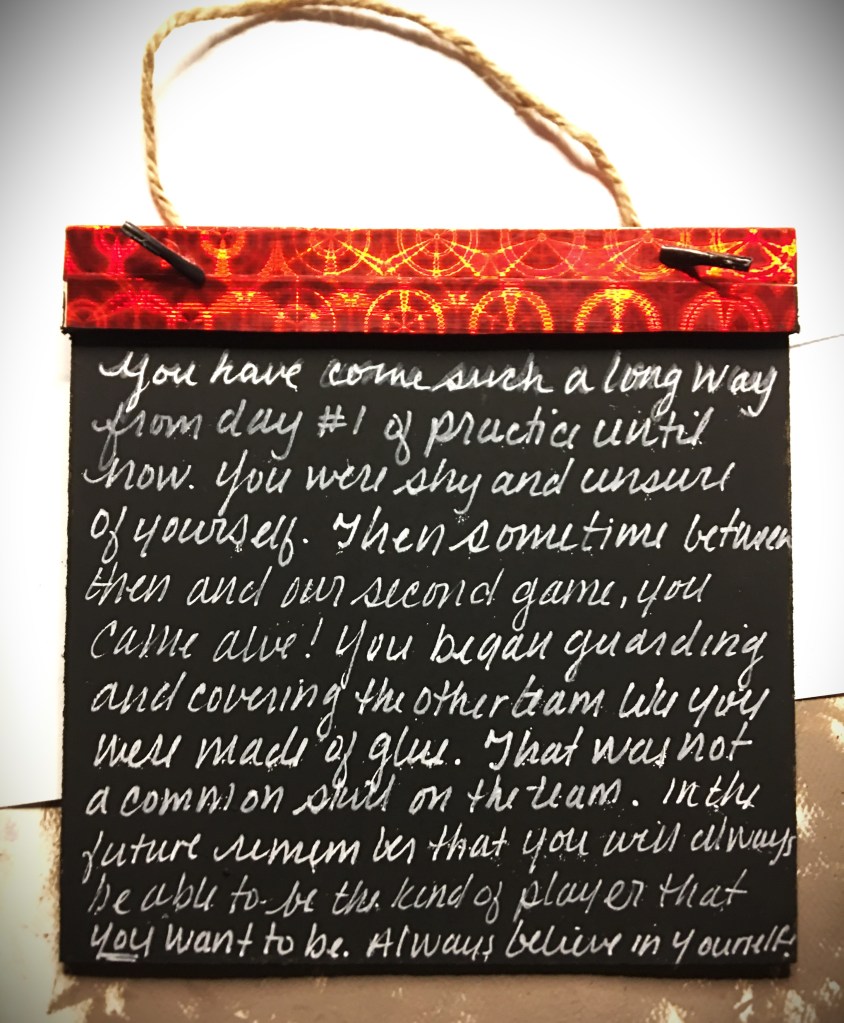 You have come such a long way
from day #1 of practice until
now. You were shy and unsure
of yourself. Then sometime between
then and our second game, you
came alive! You began guarding
and covering the other team like you
were made of glue. That was not
a common skill on the team. In the
future remember that you will always
be able to be the kind of player that
you want to be. Always believe in yourself.